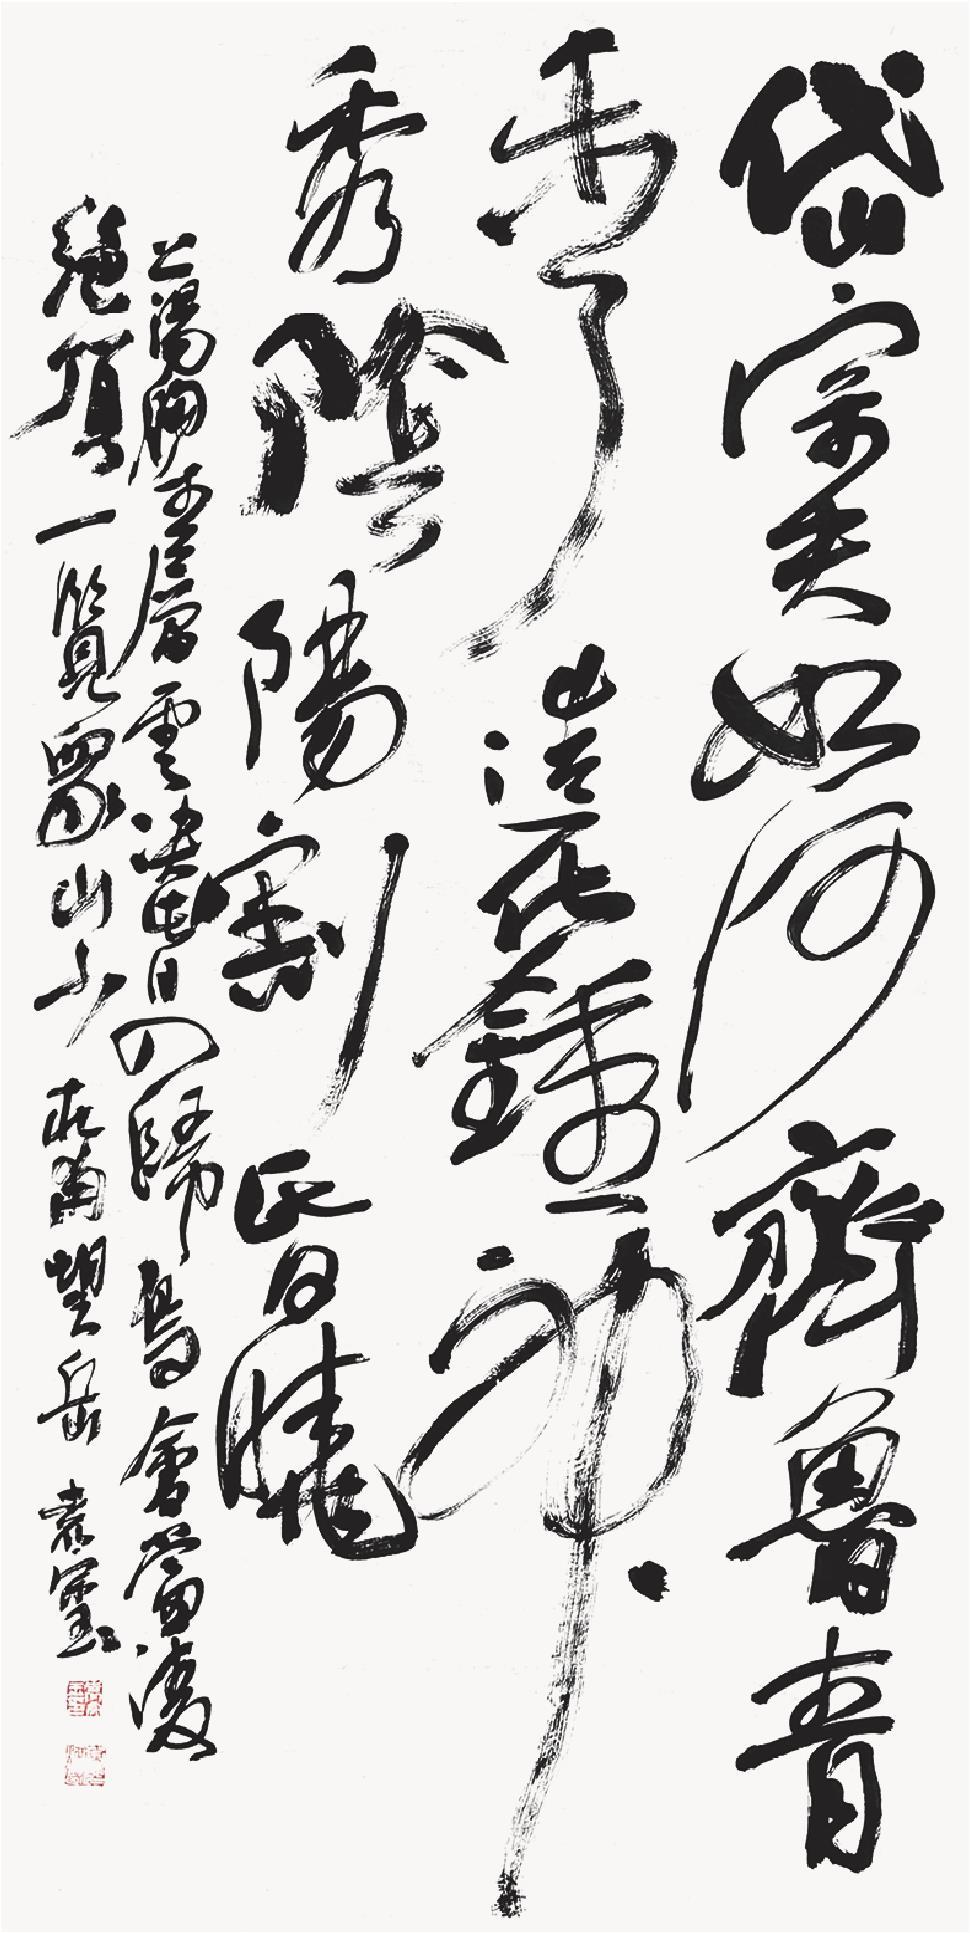 岱宗夫如何齊魯青
未了造化鍾神
秀陰陽割昏曉
蕩胸生層雲決眥入歸鳥會當凌
絕頂一覽眾山小 杜甫望岳 袁